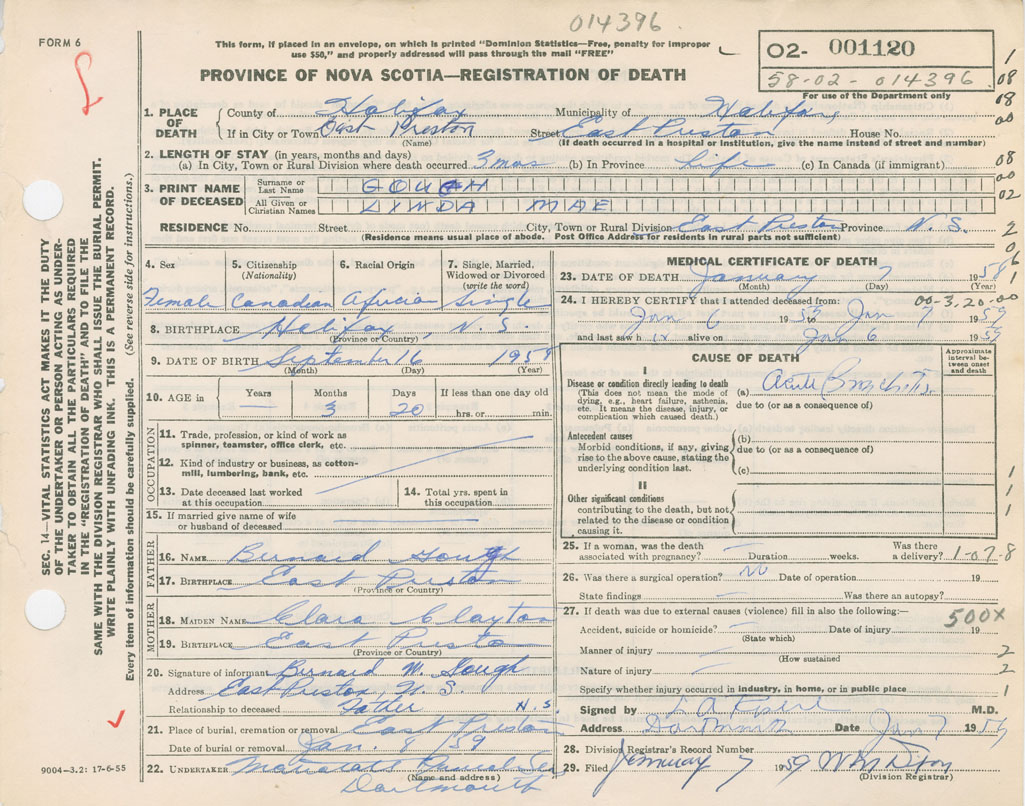 014396
FORM 6
This form, if placed in an envelope, on which is printed "Dominion Statistics—Free, penalty for improper
use $50," and properly addressed will pass through the mail "FREE"
PROVINCE OF NOVA SCOTIA—REGISTRATION OF DEATH
02- 001120
58-02-014396
For use of the Department only
1. PLACE OF DEATH
County of Halifax Municipality of Halifax
If in City or Town East Preston Street East Preston House No.
(Name) (If death occurred in a hospital or institution, give the name instead of street and number)
2. LENGTH OF STAY (in years, months and days)
(a) In City, Town or Rural Division where death occurred 3 mos (b) In Province life (c) In Canada (if immigrant)
3. PRINT NAME OF DECEASED
Surname or Last Name GOUGH
All Given or Christian Names LINDA MAE
RESIDENCE No. Street City, Town or Rural Division East Preston Province N.S.
(Residence means usual place of abode. Post Office Address for residents in rural parts not sufficient)
4. Sex
Female
5. Citizenship
(Nationality)
Canadian
6. Racial Origin
Africian
7. Single, Married,
Widowed or Divorced
(write the word)
Single
8. BIRTHPLACE Halifax, N.S.
(Province or Country)
9. DATE OF BIRTH September 16 195
(Month) (Day) (Year)
10. AGE in Years Months Days If less than one day old
— 3 20 hrs. or min.
OCCUPATION
11. Trade, profession, or kind of work as
spinner, teamster, office clerk, etc.
12. Kind of industry or business, as cotton-
mill, lumbering, bank, etc.
13. Date deceased last worked
at this occupation
14. Total yrs. spent in
this occupation
15. If married give name of wife
or husband of deceased
FATHER
16. NAME Bernard Gough
17. BIRTHPLACE East Preston
(Province or Country)
MOTHER
18. MAIDEN NAME Clara Clayton
19. BIRTHPLACE East Presto
(Province or Country)
20. Signature of informant Bernard M. Gough
Address East Preston, N.S.
Relationship to deceased Father N.S.
21. Place of burial, cremation or removal East Preston
Date of burial or removal Jan. 8/59
22. UNDERTAKER
(Name and address)
Dartmouth
MEDICAL CERTIFICATE OF DEATH
23. DATE OF DEATH January 7 195
(Month) (Day) (Year)
24. I HEREBY CERTIFY that I attended deceased from: 00-3.20-00
Jan 6 1959 to Jan 7 1959
and last saw h alive on Jan 6 1959
CAUSE OF DEATH
Approximate
interval be-
tween onset
and death
I
Disease or condition directly leading to death
(This does not mean the mode of
dying, e.g., heart failure, asthenia,
etc. It means the disease, injury, or
complication which caused death.)
(a) Acute Bronchitis
due to (or as a consequence of)
Antecedent causes
Morbid conditions, if any, giving
rise to the above cause, stating the
underlying condition last.
(b)
due to (or as a consequence of)
(c)
II
Other significant conditions
contributing to the death, but not
related to the disease or condition
causing it.
25. If a woman, was the death
associated with pregnancy? Duration weeks. Was there
a delivery? 1-07-8
26. Was there a surgical operation? no Date of operation 19
State findings Was there an autopsy?
27. If death was due to external causes (violence) fill in also the following:—
500X
Accident, suicide or homicide? Date of injury 19
(State which)
Manner of injury
(How sustained
Nature of injury
Specify whether injury occurred in industry, in home, or in public place
Signed by M.D.
Address Date Jan 7 1959
28. Division Registrar's Record Number
29. Filed January 7 1959
(Division Registrar)
9004-3.2: 17-6-55
SEC. 14—VITAL STATISTICS ACT MAKES IT THE DUTY
OF THE UNDERTAKER OR PERSON ACTING AS UNDER-
TAKER TO OBTAIN ALL THE PARTICULARS REQUIRED
IN THE "REGISTRATION OF DEATH" AND TO FILE THE
SAME WITH THE DIVISION REGISTRAR WHO SHALL ISSUE THE BURIAL PERMIT.
WRITE PLAINLY WITH UNFADING INK. THIS IS A PERMANENT RECORD.
Every item of information should be carefully supplied. (See reverse side for instructions.)
1
08
08
00
08
00
02
2
0
6
1
1
1
1
2
2
1